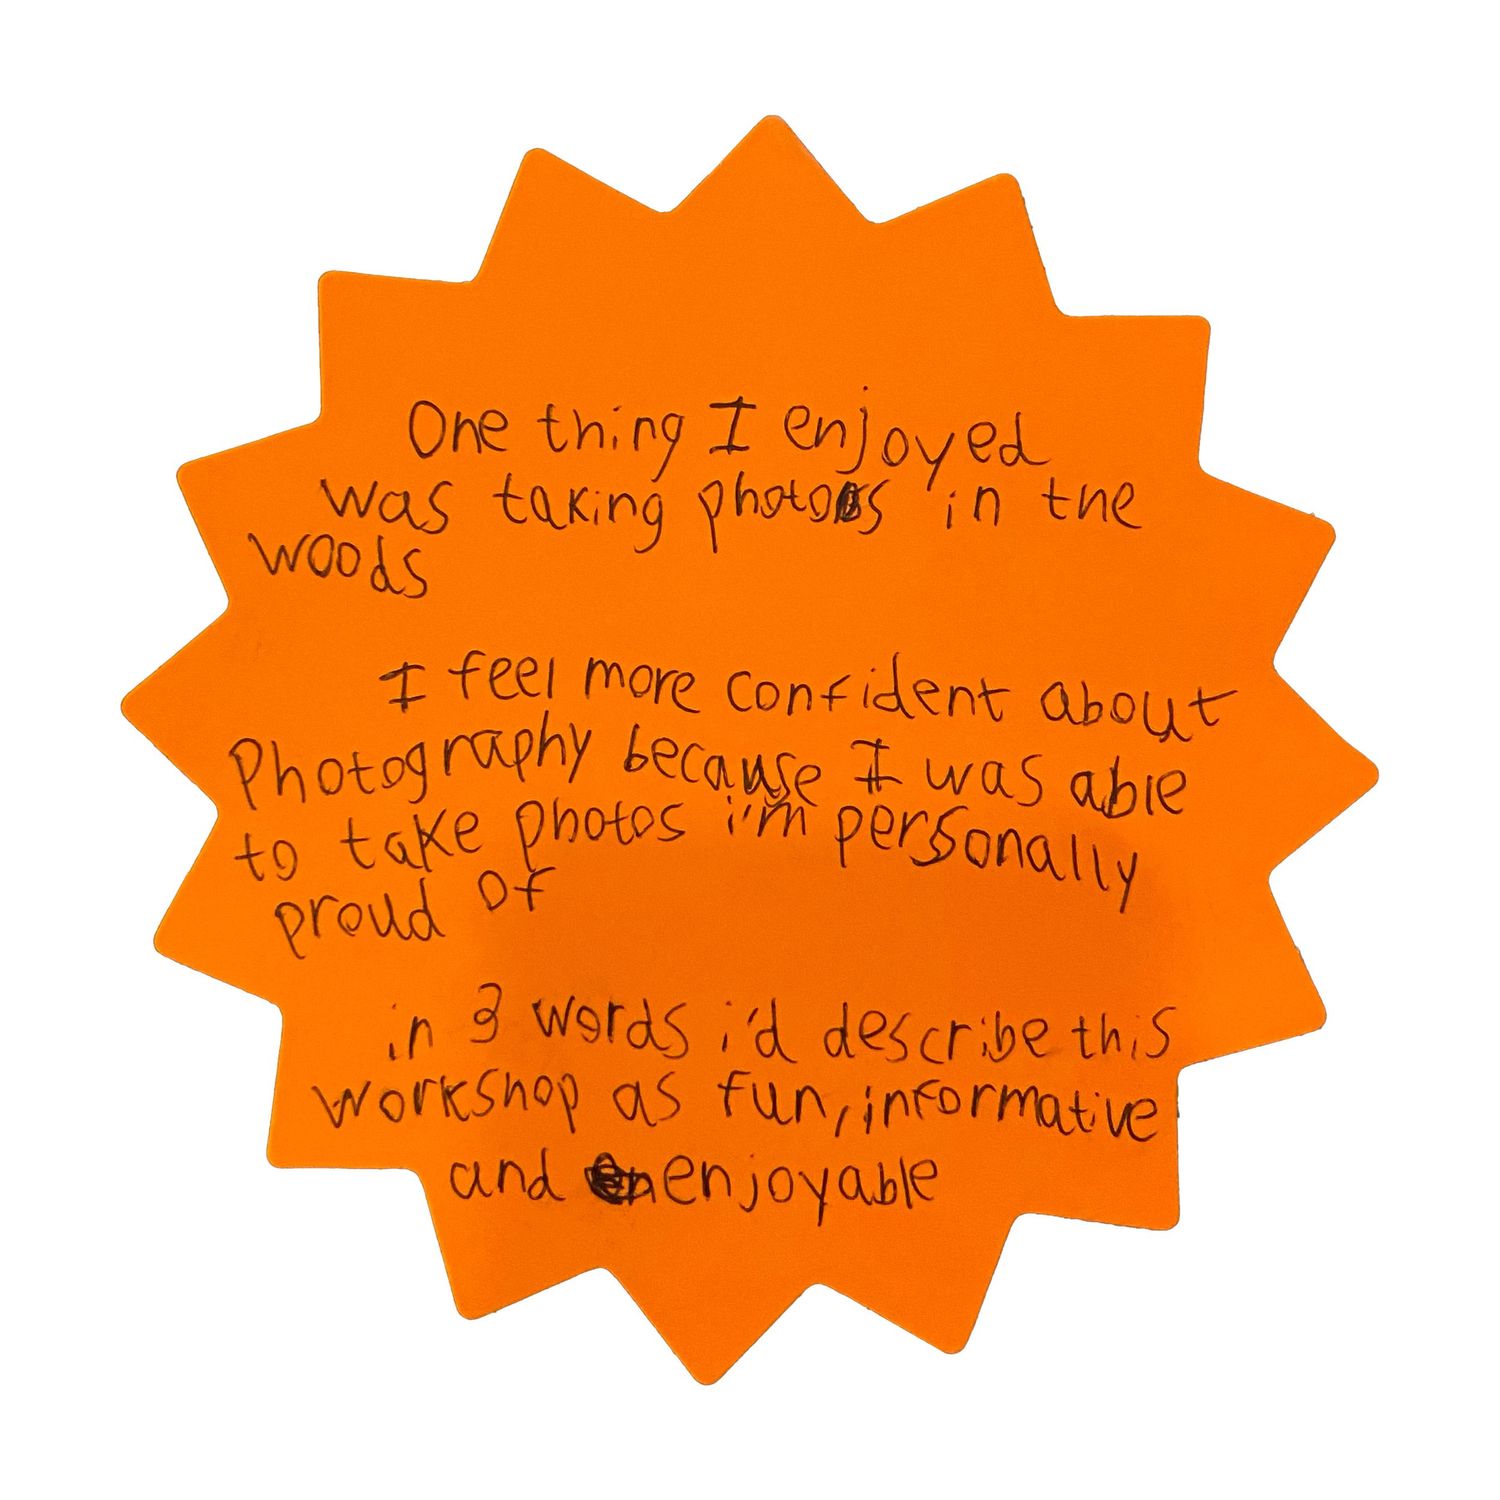 One thing I enjoyed
was taking photos in the
woods
I feel more confident about
Photography because I was able
to take photos i'm personally
proud of
in 3 words i'd describe this
workshop as fun, informative
and enjoyable